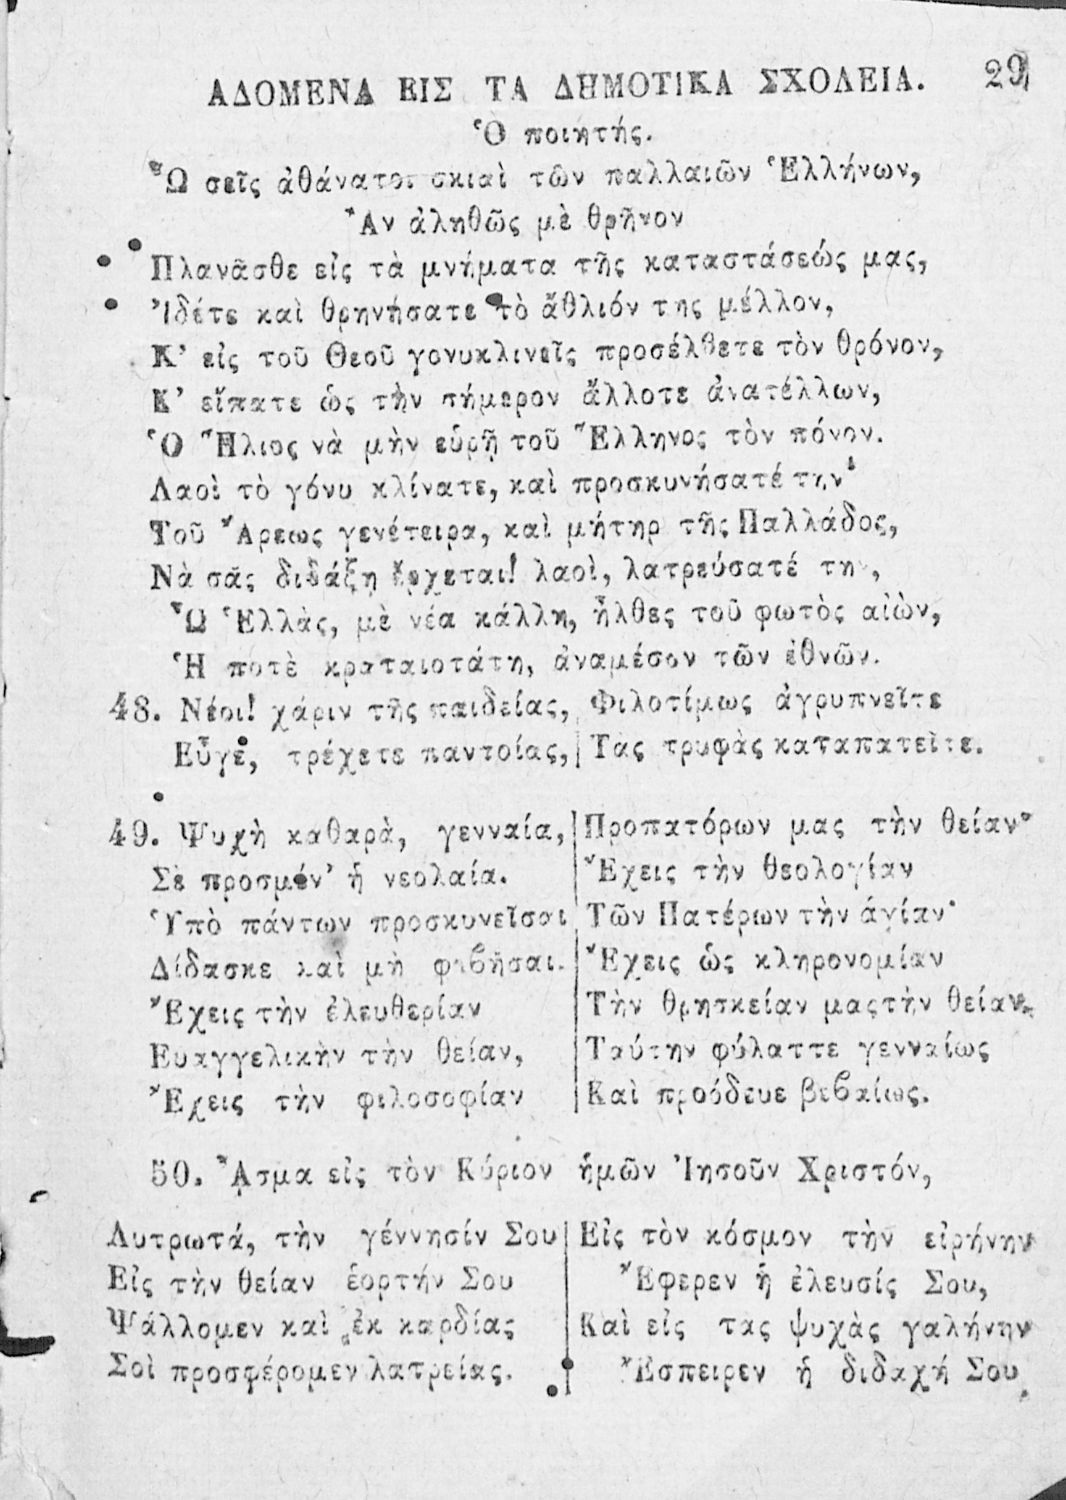 ΑΔΟΜΕΝΑ ΕΙΣ ΤΑ ΔΗΜΟΤΙΚΑ ΣΧΟΛΕΙΑ. 29
Ὁ ποιητής.
Ὦ σεῖς ἀθάνατοι σκιαὶ τῶν παλλαιῶν Ἑλλήνων,
Ἂν ἀληθῶς μὲ θρῆνον
Πλανᾶσθε εἰς τὰ μνήματα τῆς καταστάσεώς μας,
Ἰδέτε καὶ θρηνήσατε τὸ ἄθλιόν της μέλλον,
Κ' εἰς τοῦ Θεοῦ γονυκλινεῖς προσέλθετε τὸν θρόνον,
Κ' εἴπατε ὡς τὴν σήμερον ἄλλοτε ἀνατέλλων,
Ὁ Ἥλιος νὰ μὴν εὑρῇ τοῦ Ἕλληνος τὸν πόνον.
Λαοὶ τὸ γόνυ κλίνατε, καὶ προσκυνήσατέ την·
Τοῦ Ἄρεως γενέτειρα, καὶ μήτηρ τῆς Παλλάδος,
Νὰ σᾶς διδάξῃ ἔρχεται! λαοὶ, λατρεύσατέ την,
Ὦ Ἑλλὰς, μὲ νέα κάλλη, ἦλθες τοῦ φωτὸς αἰὼν,
Ἡ ποτὲ κραταιοτάτη, ἀναμέσον τῶν ἐθνῶν.
48. Νέοι! χάριν τῆς παιδείας, Φιλοτίμως ἀγρυπνεῖτε
Εὖγε, τρέχετε παντοίας, Τας τρυφὰς καταπατεῖτε.
49. Ψυχὴ καθαρὰ, γενναία,
Σὲ προσμέν' ἡ νεολαία.
Ὑπὸ πάντων προσκυνεῖσαι
Δίδασκε καὶ μὴ φοβῆσαι.
Ἔχεις τὴν ἐλευθερίαν
Ευαγγελικὴν τὴν θείαν,
Ἔχεις τὴν φιλοσοφίαν
Προπατόρων μας τὴν θείαν·
Ἔχεις τὴν θεολογίαν
Τῶν Πατέρων τὴν ἁγίαν·
Ἔχεις ὡς κληρονομίαν
Τὴν θρησκείαν μας τὴν θείαν.
Ταύτην φύλαττε γενναίως
Καὶ προόδευε βεβαίως.
50. ᾎσμα εἰς τὸν Κύριον ἡμῶν Ἰησοῦν Χριστόν,
Λυτρωτά, τὴν γέννησίν Σου
Εἰς τὴν θείαν ἑορτήν Σου
Ψάλλομεν καὶ ἐκ καρδίας
Σοὶ προσφέρομεν λατρείας.
Εἰς τὸν κόσμον τὴν εἰρήνην
Ἔφερεν ἡ ἐλευσίς Σου,
Καὶ εἰς τας ψυχὰς γαλήνην
Ἔσπειρεν ἡ διδαχή Σου